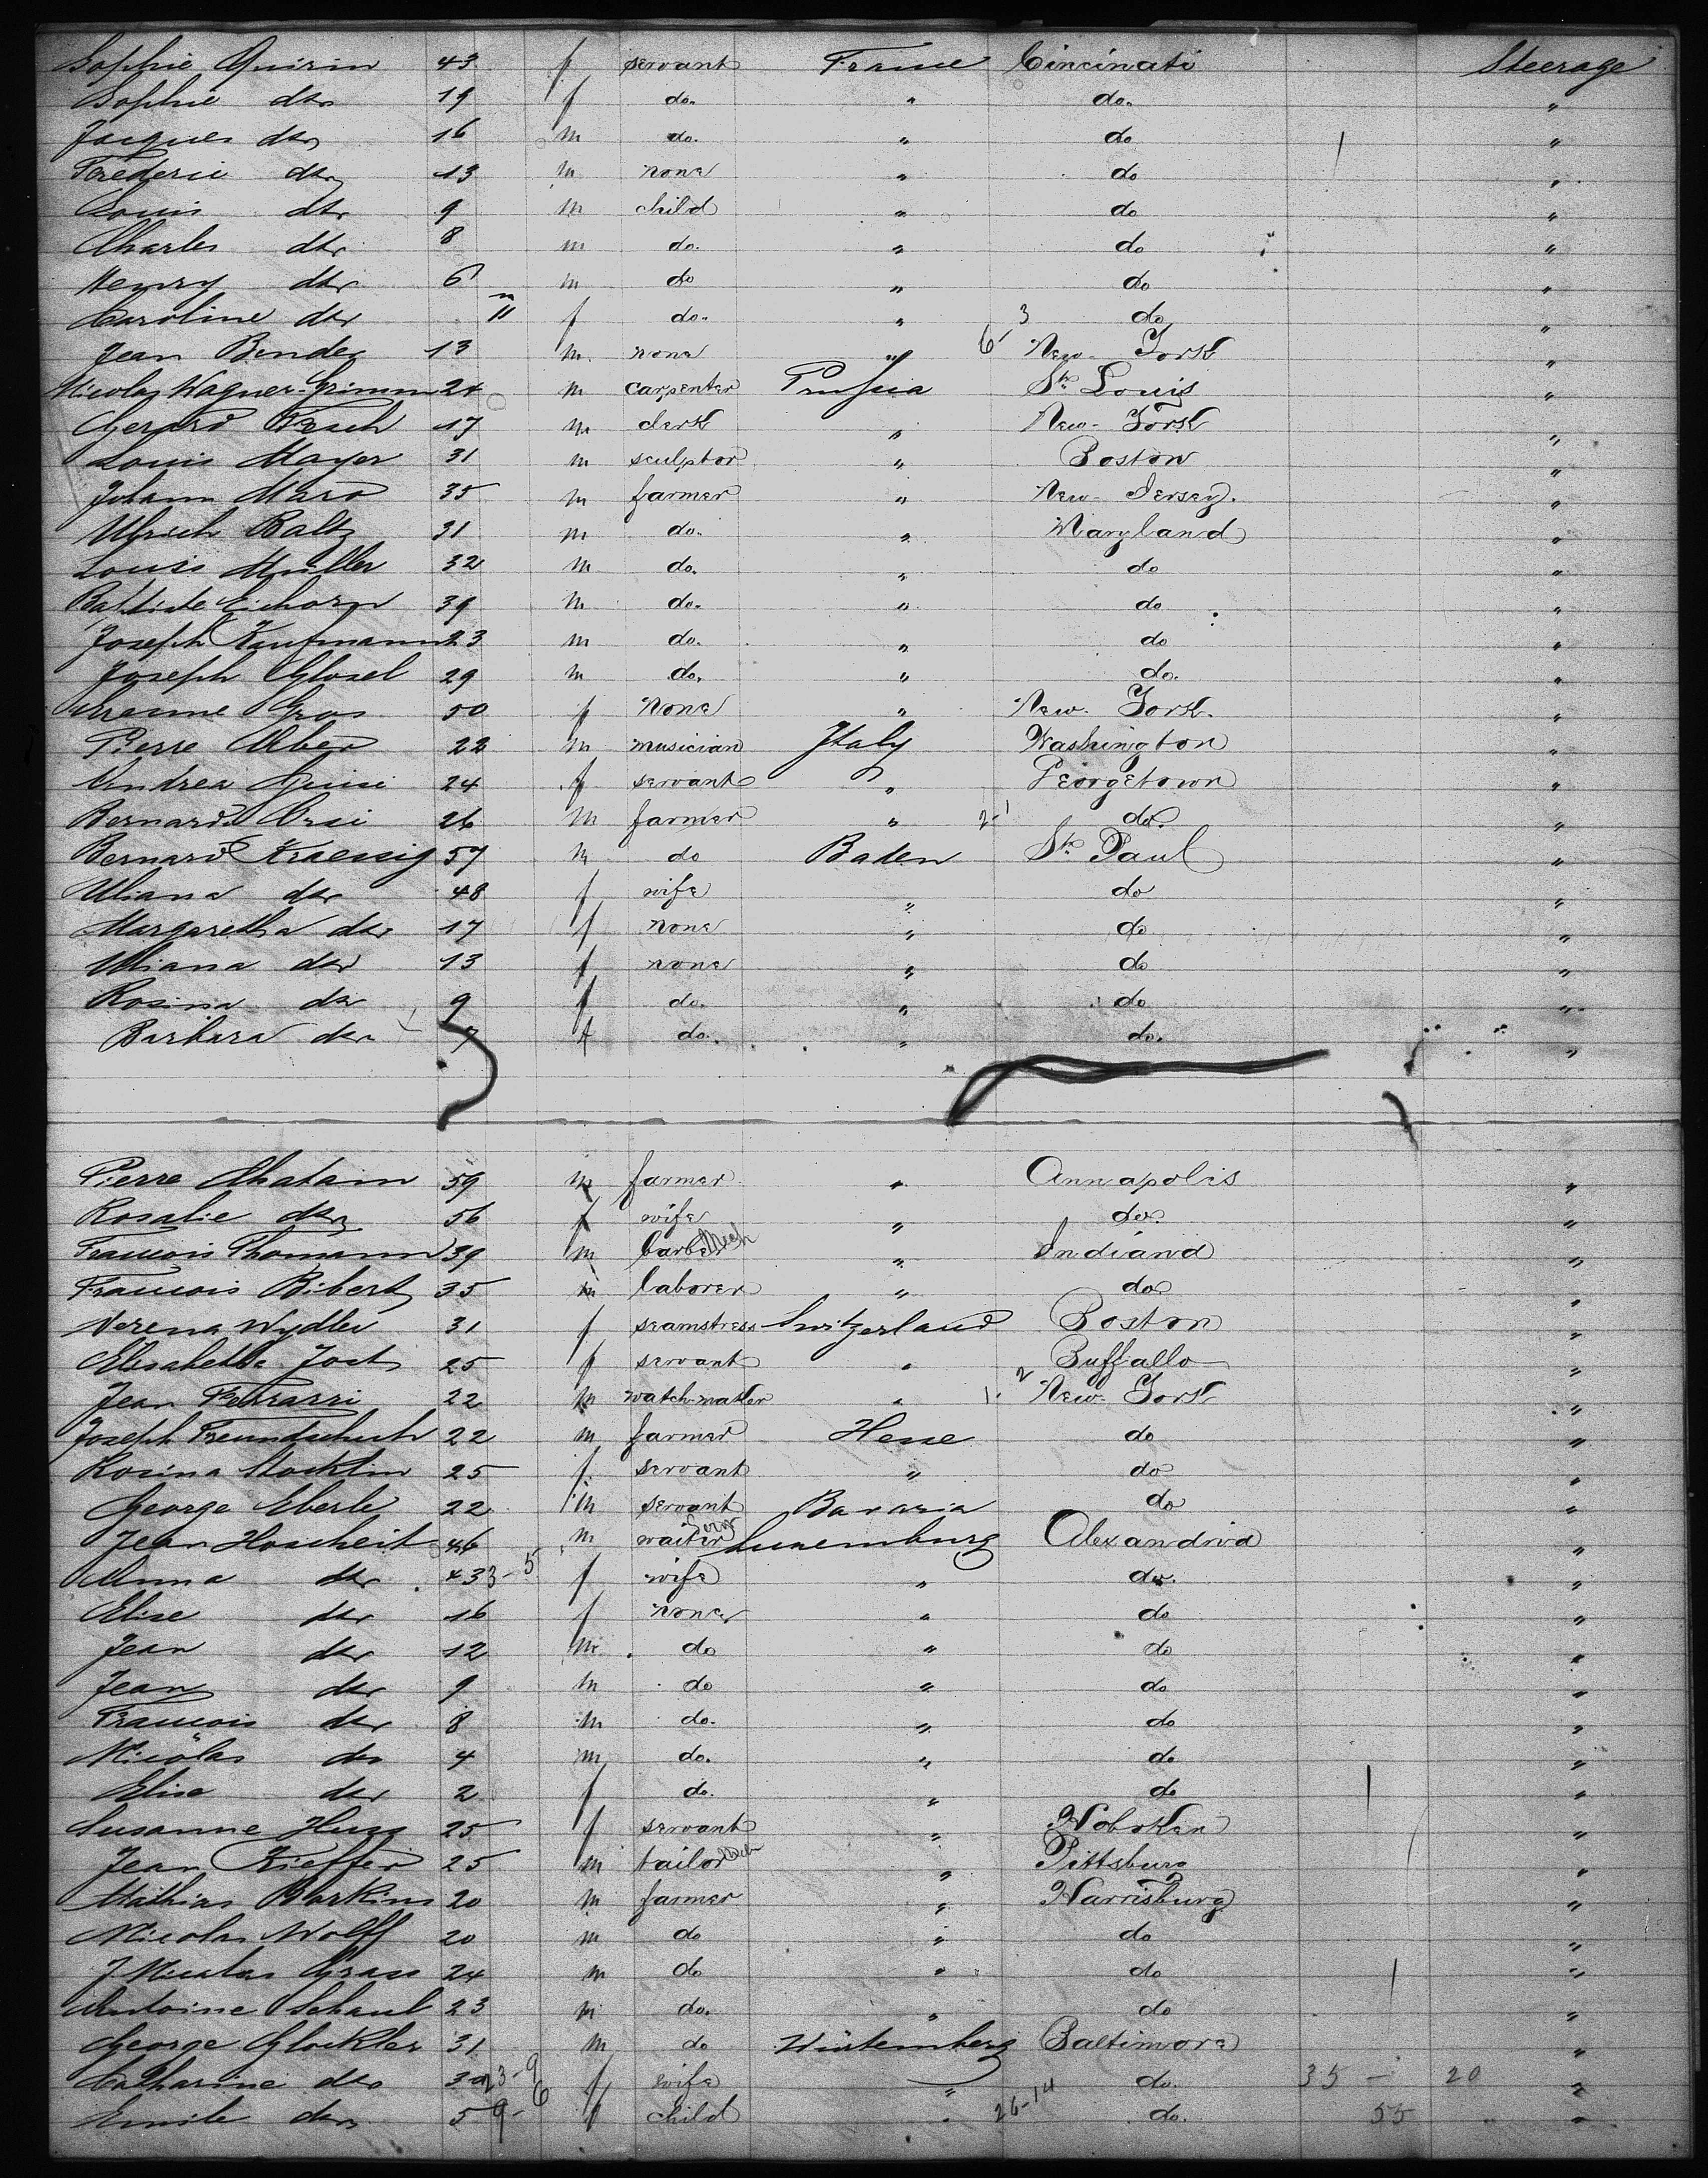 Sophie Guirin 43 f servant France Cincinati Steerage
Sophie dto 19 f do. " do. "
Jacques dto 16 m do. " do "
Frederic dto 13 m none " do "
Louis dto 9 m child " do "
Charles dto 8 m do. " do "
Henry dto 6 m do " do "
Caroline dto 11 m f do. " 3 do "
Jean Bender 13 m. none " 6 New-York "
Nicolas Wagner-Grimm 24 m carpenter Prussia St. Louis "
Gerard 17 m clerk " New-York "
Louis Mayer 31 m sculptor " Boston "
Johann 35 m farmer " New-Jersey. "
Ulrich Baltz 31 m do. " Maryland "
Louis Müller 32 m do. " do "
Baptiste Eichorn 39 m do. " do "
Joseph Kaufmann 23 m do. " do "
Joseph Glosel 29 m do. " do. "
Gros 50 f none " New-York. "
Pierre Alber 22 m musician Italy Washington "
Andrea 24 f servant " Georgetown "
Bernard Orsi 26 m farmer " 2-1 do. "
Bernard Kraessig 57 m do Baden St. Paul "
Uliana dto 48 f wife " do "
Margaretha dto 17 f none " do "
Uliana dto 13 f none " do "
Rosina dto 9 f do. " do "
Barbara dto 7 f do. " do. "
Pierre Chatain 59 m farmer " Annapolis "
Rosalie dto 56 f wife " do. "
Francois Thomann 39 m barber Mech " Indiana "
Francois Bibert 35 m laborer " do "
Verena Wydler 31 f seamstress Switzerland Boston "
Elisabetha Jost 25 f servant " Buffallo "
Jean Ferrarri 22 m watch-maker " 1. 2 New-York "
Joseph Freundschuh 22 m farmer Hesse do "
Rosina Stocklin 25 f. servant " do "
George Eberle 22 m servant Bavaria do "
Jean Hoscheit 46 m waiter Serv Luxemburg Alexandria "
Anna dto 43 3-5 f wife " do. "
Elise dto 16 f none " do "
Jean dto 12 m do " do "
Jean dto 9 m do " do "
Francois dto 8 m do. " do "
Nicolas dto 4 m do. " do "
Elise dto 2 f do. " do "
Susanne Huss 25 f servant " Hoboken "
Jean Kieffer 25 m tailor Mech " Pittsburg "
Mathias Barkins 20 m farmer " Harrisburg "
Nicolas Wolff 20 m do " do "
J. Nicolas Grass 24 m do " do "
Antoine Schaul 23 m do. " do "
George Glockler 31 m do Würtemberg Baltimore "
Catharine dto 30 23-9 f wife " do. 35 - 20 "
Emile dto 5 9-6 f child " 26-14 do. 55 "